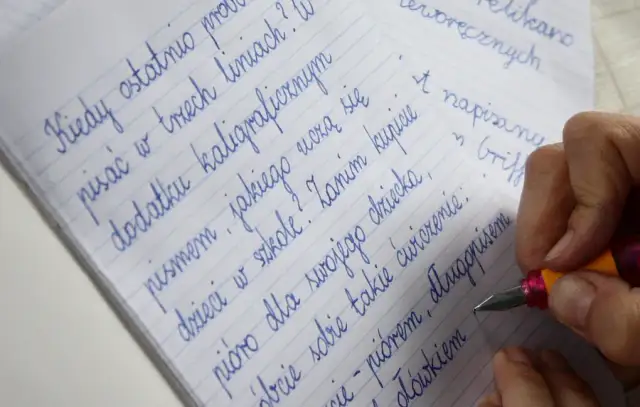 Kiedy ostatnio
pisać w trzech liniach? W
dodatku kaligraficznym
pismem, jakiego uczą się
dzieci w szkole? Zanim kupicie
pióro dla swojego dziecka,
sobie takie ćwiczenie:
piórem, długopisem
ołówkiem
leworęcznych
napisany